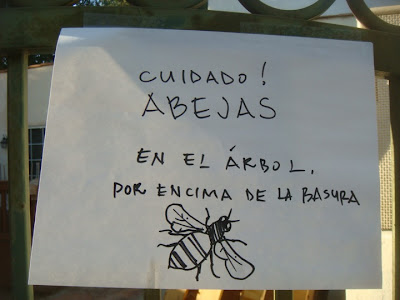 CUIDADO!
ABEJAS
EN EL ÁRBOL,
POR ENCIMA DE LA BASURA